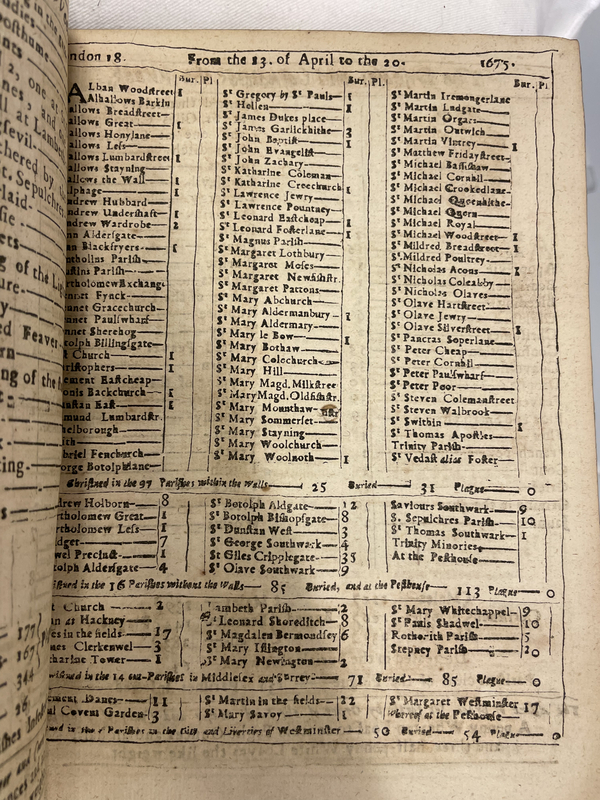 ndon 18. From the 13. of April to the 20. 1675.
Bur. Pl
ALban Woodstreet 1
Alhallows Barkin
allows Breadstreet
allows Great 1
allows Honylane
allows Less
allows Lumbardstreet 1
allows Stayning
allows the Wall
lphage 1
ndrew Hubbard
ndrew Undershaft 1
ndrew Wardrobe 2
nn Aldersgate
nn Blackfryers 1
ntholins Parish
ustins Parish
rtholomew Exchange
ennet Fynck
ennet Gracechurch
nnet Paulswharf
nnet Sherehog
otolph Billingsgate
t Church 1
ristophers 1
ement Eastcheap
onis Backchurch 1
nstan East 1
mund Lumbardstr.
helborough
ith
briel Fenchurch
orge Botolphlane
Bur. Pl.
St Gregory by St Pauls 1
St Hellen 1
St James Dukes place
St James Garlickhithe 3
St John Baptist 1
St John Evangelist
St John Zachary
St Katharine Coleman
St Katharine Creechurch 1
St Lawrence Jewry
St Lawrence Pountney
St Leonard Eastcheap 1
St Leonard Fosterlane 1
St Magnus Parish
St Margaret Lothbury
St Margaret Moses
St Margaret Newfishstr.
St Margaret Pattons
St Mary Abchurch
St Mary Aldermanbury 1
St Mary Aldermary
St Mary le Bow 1
St Mary Bothaw
St Mary Colechurch
St Mary Hill
St Mary Magd. Milkstree
St Mary Magd. Oldfishstr.
St Mary Mounthaw
St Mary Sommerset
St Mary Stayning
St Mary Woolchurch
St Mary Woolnoth 1
Bur. Pl
St Martin Iremongerlane
St Martin Ludgate
St Martin Orgars
St Martin Outwich
St Martin Vintrey 1
St Matthew Fridaystreet
St Michael Bassishaw
St Michael Cornhil
St Michael Crookedlane
St Michael Queenhithe
St Michael Quern
St Michael Royal
St Michael Woodstreet 1
St Mildred Breadstreet 1
St Mildred Poultrey
St Nicholas Acons 1
St Nicholas Coleabby
St Nicholas Olaves
St Olave Hartstreet
St Olave Jewry
St Olave Silverstreet 1
St Pancras Soperlane
St Peter Cheap
St Peter Cornhil
St Peter Paulswharf
St Peter Poor
St Steven Colemanstreet
St Steven Walbrook
St Swithin 1
St Thomas Apostles
Trinity Parish
St Vedast alias Foster
Christned in the 97 Parishes within the walls 25 Buried 31 Plague 0
drew Holborn 8
rtholomew Great 1
rtholomew Less 1
idger 7
wel Precinct 1
tolph Aldersgate 4
St Botolph Aldgate 12
St Botolph Bishopsgate 8
St Dunstan West 3
St George Southwark 4
St Giles Cripplegate 35
St Olave Southwark 9
Saviours Southwark 9
S. Sepulchres Parish 10
St Thomas Southwark 1
Trinity Minories
At the Pesthouse
istned in the 16 Parishes without the Walls 85 Buried, and at the Pesthouse 113 Plague 0
t Church 2
hn at Hackney
es in the fields 17
mes Clerkenwel 3
tharine Tower 1
Lambeth Parish 2
St Leonard Shoreditch 8
St Magdalen Bermondsey 6
St Mary Islington
St Mary Newington 2
St Mary Whitechappel 9
St Pauls Shadwel 10
Rotherith Parish 5
Stepney Parish 20
ristned in the 14 out-Parishes in Middlesex and Surrey 71 Buried 85 Plague 0
ement Danes 11
ul Covent Garden 3
St Martin in the fields 22
St Mary Savoy 1
St Margaret Westminster 17
whereof at the Pesthouse
ned in the 5 Parishes in the City and Liberties of Westminster 50 Buried 54 Plague 0